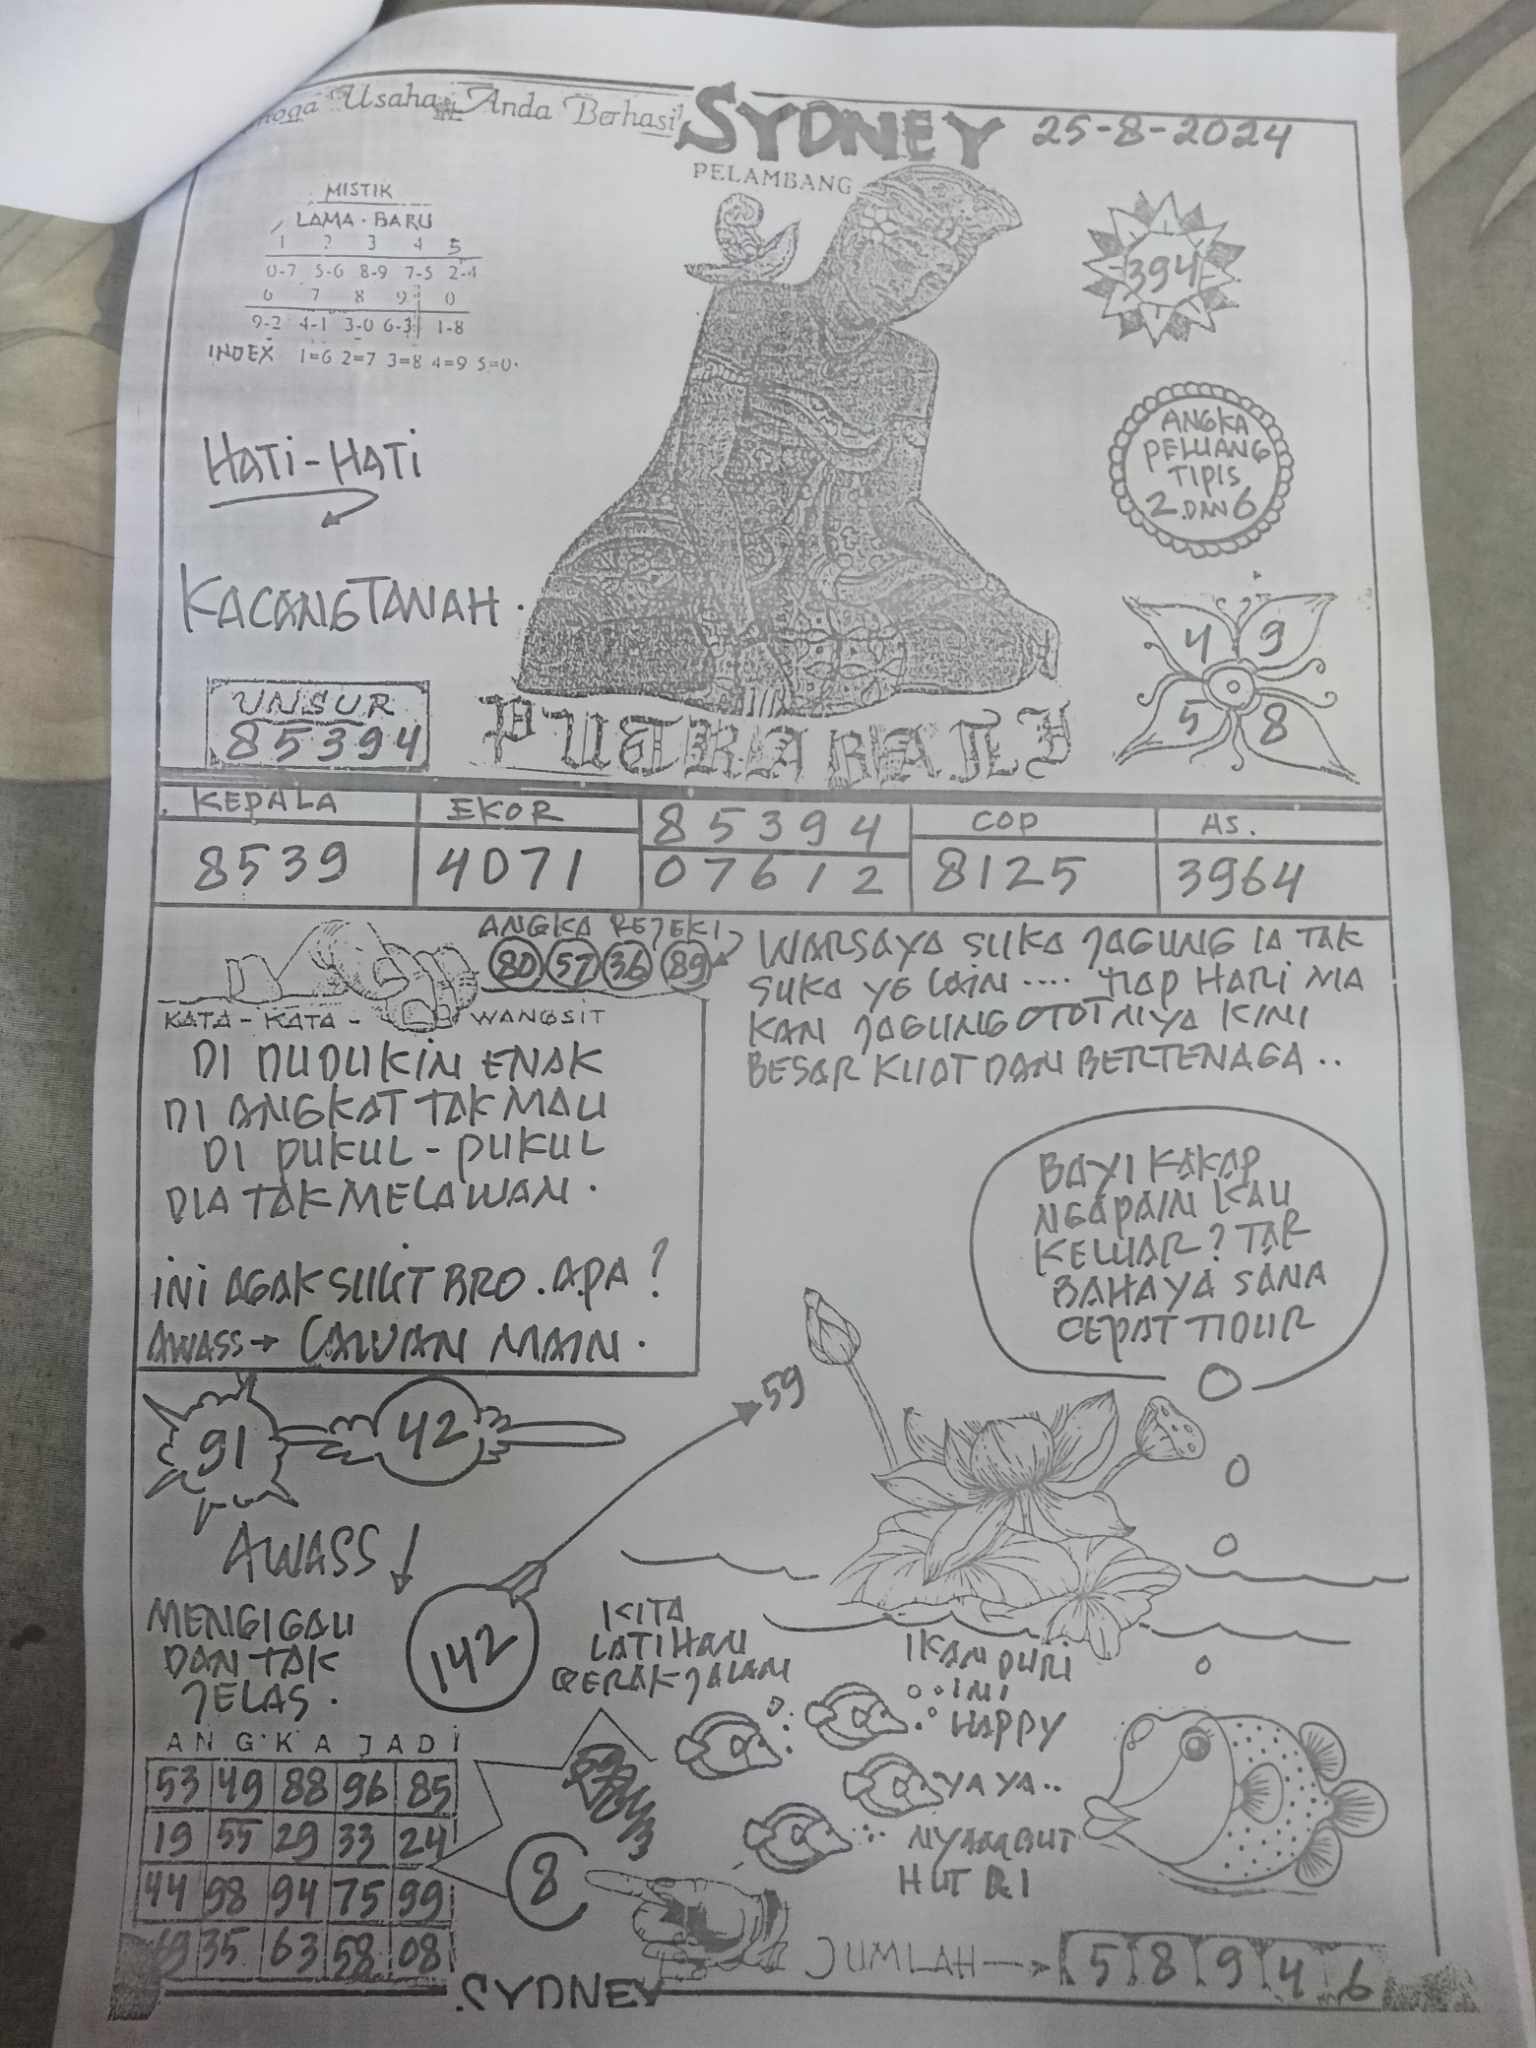 Usaha Anda Berhasil
SYDNEY 25-8-2024
PELAMBANG
MISTIK
LAMA . BARU
1 2 3 4 5
0-7 5-6 8-9 7-5 2-4
6 7 8 9 0
9-2 4-1 3-0 6-3 1-8
INDEX 1=6 2=7 3=8 4=9 5=0.
394
HATI-HATI
ANGKA
PELUANG
TIPIS
2 DAN 6
KACANG TANAH.
4 9
5 8
UNSUR
85394
PUTRA BALI
KEPALA EKOR 85394 COP AS.
8539 4071 07612 8125 3964
ANGKA REJEKI
80 57 36 89
KATA-KATA- WANGSIT
DI DUDUKIN ENAK
DI ANGKAT TAK MAU
DI PUKUL-PUKUL
DIA TAK MELAWAN.
INI AGAK SULIT BRO. APA?
AWASS → LAWAN MAIN.
WARSAYA SUKA JAGUNG IA TAK
SUKA YG LAIN .... TIAP HARI MA
KAN JAGUNG OTOTNIYA KINI
BESAR KUAT DAN BERTENAGA..
BAYI KAKAP
NGAPAIN KAU
KELUAR? TAK
BAHAYA SANA
CEPAT TIDUR
91 42
59
AWASS
142
MENGIGAU
DAN TAK
JELAS.
KITA
LATIHAN
GERAK JALAN
IKAN DURI
INI
HAPPY
YA YA..
NYAMBUT
HUT RI
ANGKA JADI
53 49 88 96 85
19 55 29 33 24
44 98 94 75 99
69 35 63 58 08
8
JUMLAH → 5 8 9 4 6
SYDNEY